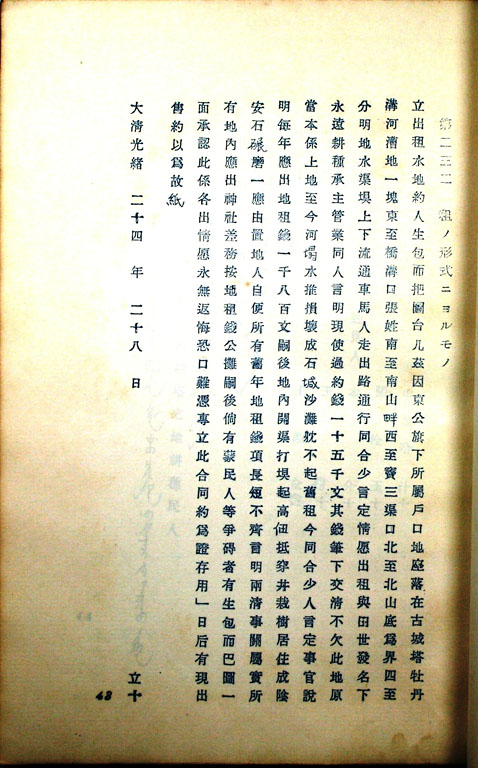 第二三二 租ノ形式ニヨルモノ
立出租水地約人生包而把圖台几茲因東公旗下所屬戶口地座落在古城塔牡丹
溝河漕地一塊東至橋溝口張姓南至南山畔西至寶三渠口北至北山底為界四至
分明地水渠垻上下流通車馬人走出路通行同合少言定情愿出租與田世發名下
永遠耕種承主管業同人言明現使過約錢一十五千文其錢筆下交清不欠此地原
當本係上地至今河塌水推損壞成石墄沙灘躭不起舊租今同合少人言定事官說
明每年應出地租錢一千八百文嗣後地內開渠打垻起高佃抵穿井栽樹居住成陰
安石碾磨一應由置地人自便所有舊年地租錢項長短不齊言明兩清事關屬實所
有地內應出神社差務按地租錢公攤嗣後倘有蒙民人等爭碍者有生包而巴圖一
面承認此係各出情愿永無返悔恐口難憑專立此合同約為證存用」日后有現出
舊約以為故紙
大清光緒 二十四 年 二十八 日 立十
43